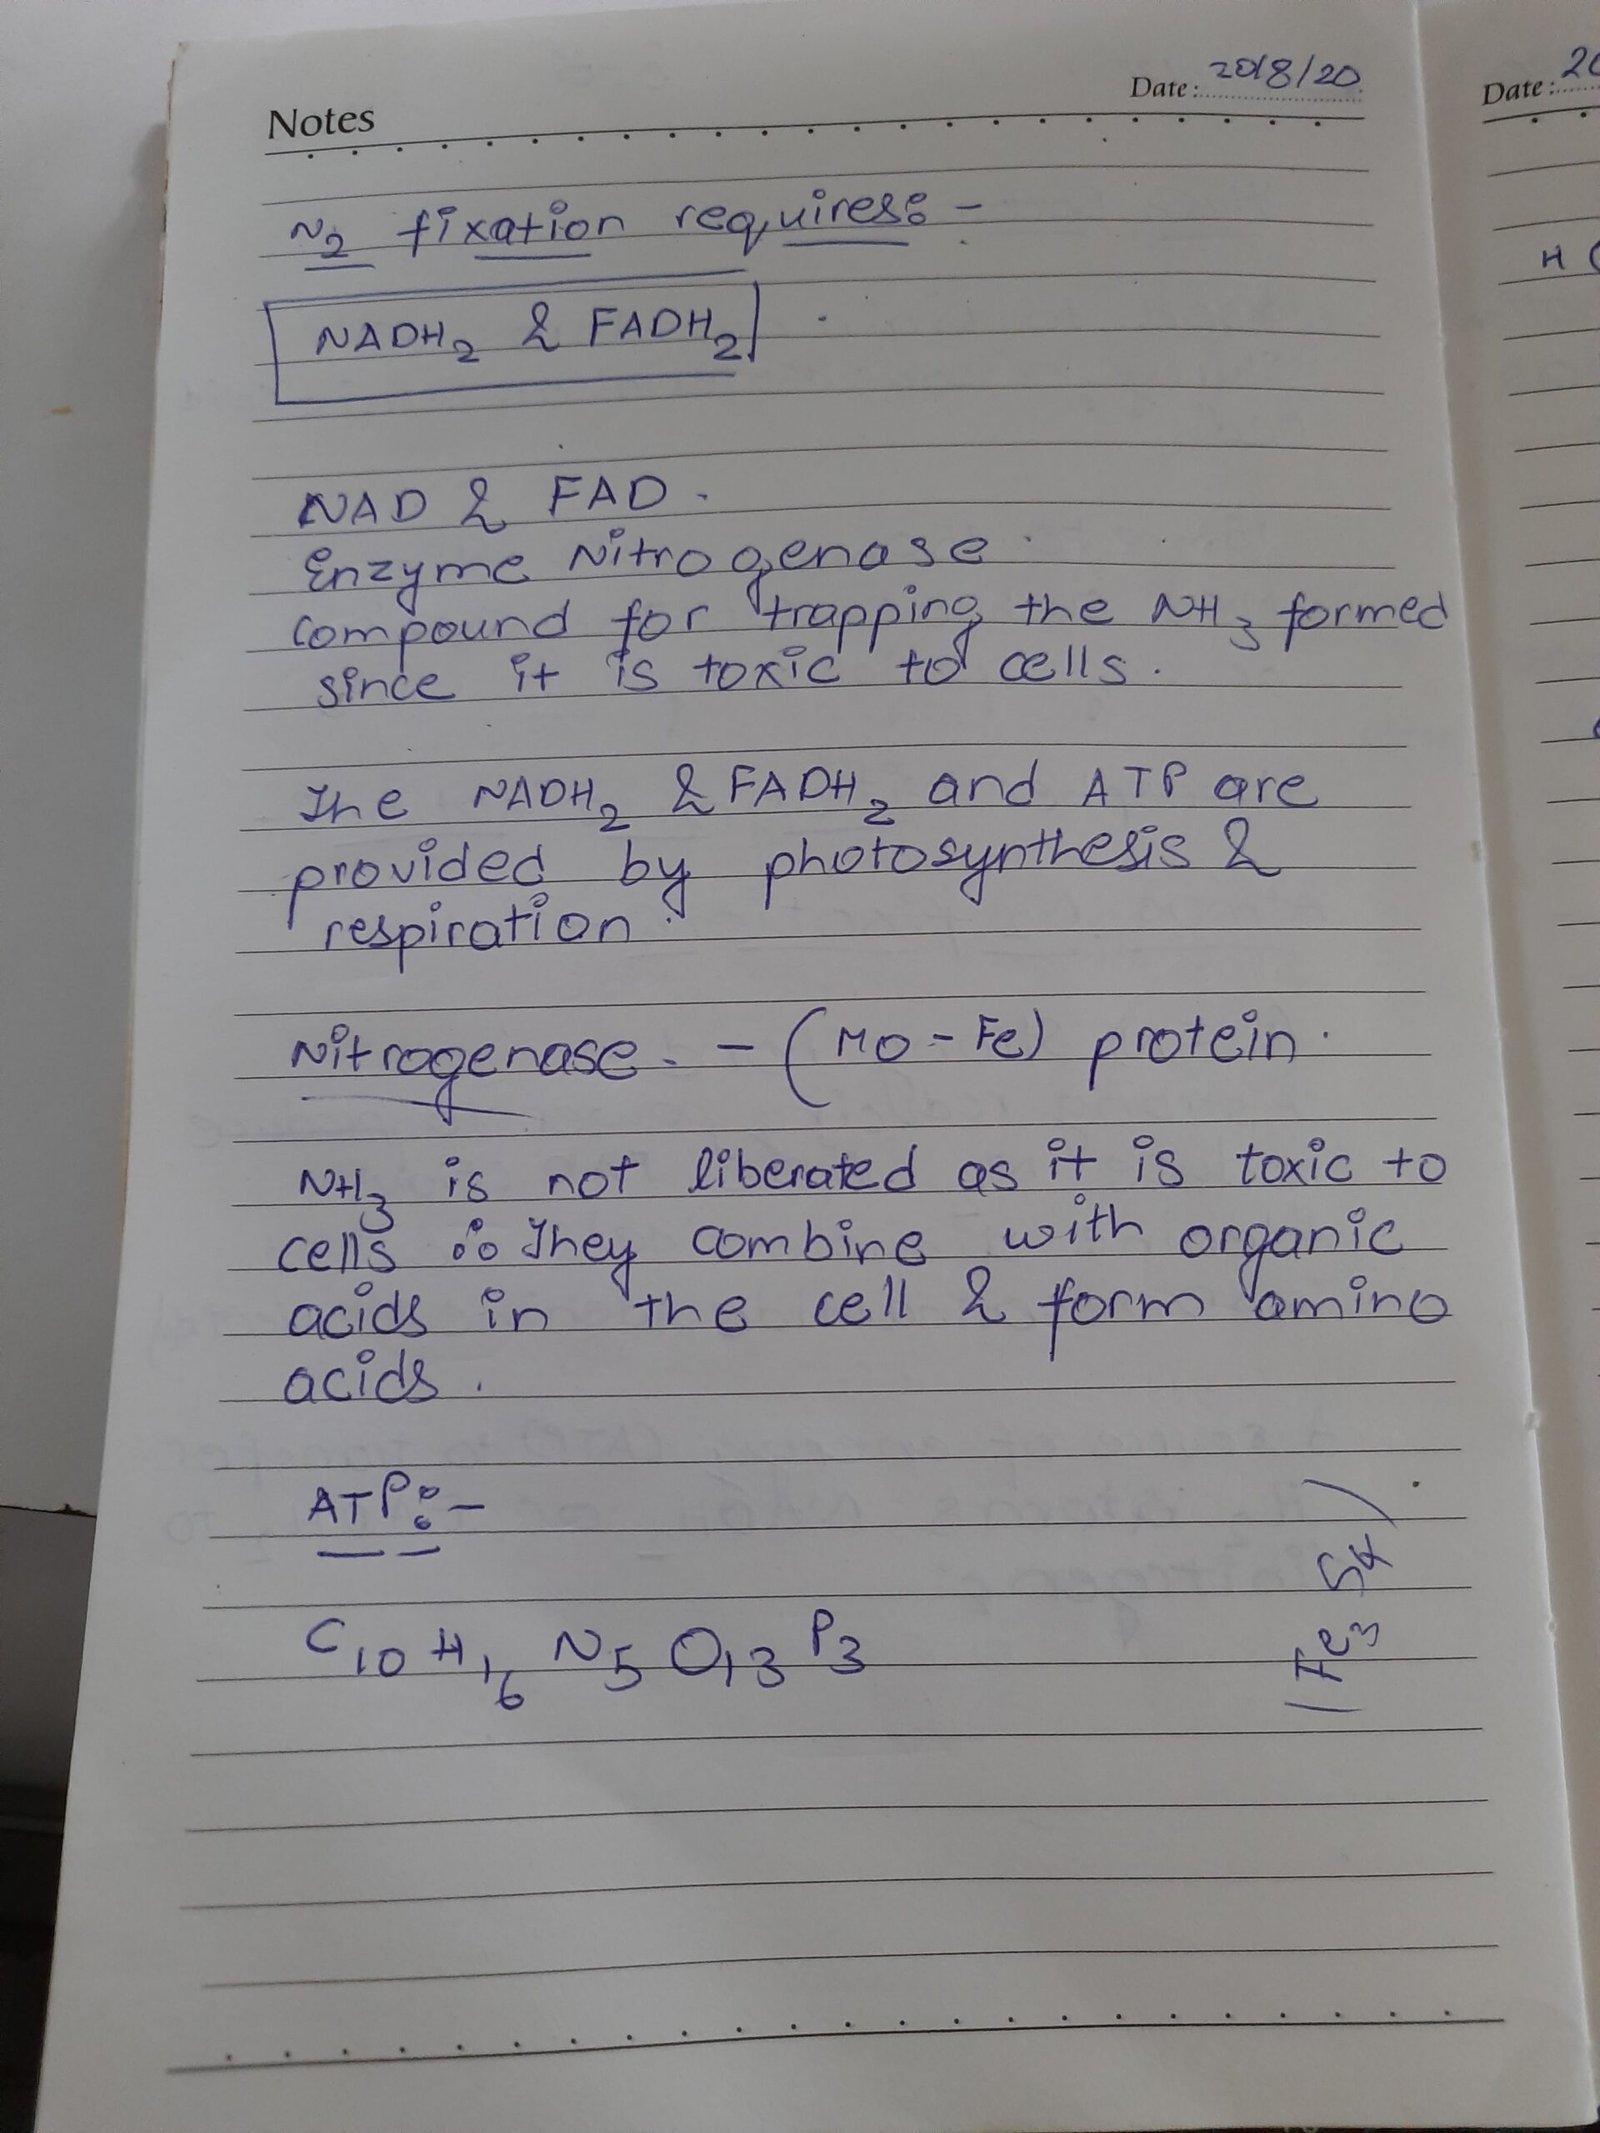 Notes
Date: 20/8/20
N₂ fixation requires:-
NADH₂ & FADH₂
NAD & FAD.
Enzyme Nitrogenase.
compound for trapping the NH₃ formed
since it is toxic to cells.
The NADH₂ & FADH₂ and ATP are
provided by photosynthesis &
respiration.
Nitrogenase. - (Mo-Fe) protein.
NH₃ is not liberated as it is toxic to
cells ∴ They combine with organic
acids in the cell & form amino
acids.
ATP:-
C₁₀H₁₆N₅O₁₃P₃
(Fe₃S₄)
Date: 20
H